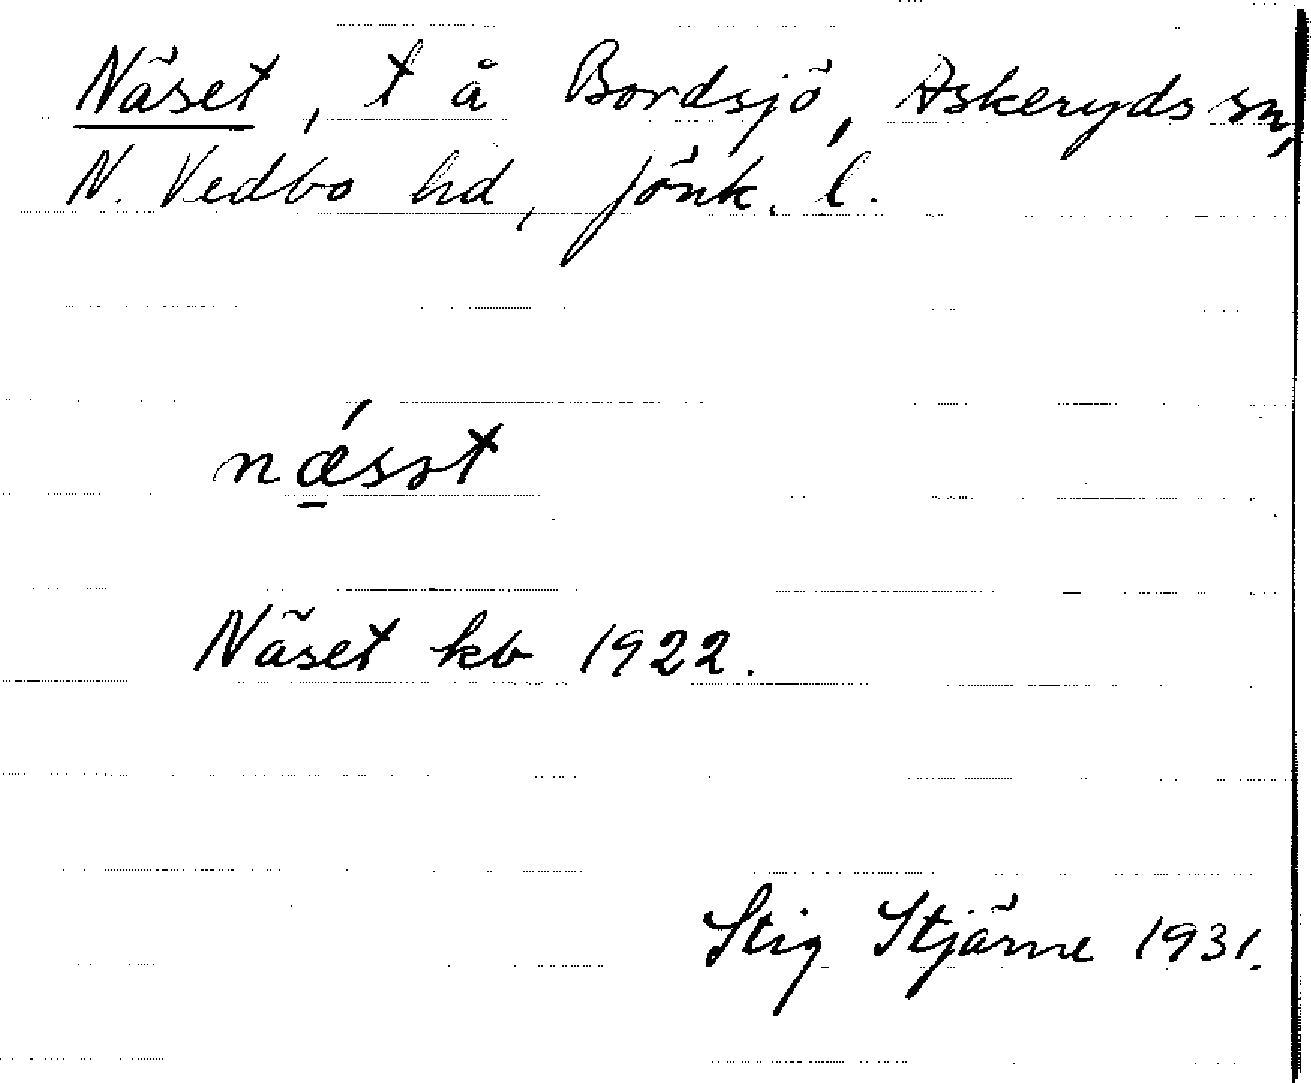 Näset, t å Bordsjö, Askeryds sn,
N. Vedbo hd, Jönk. l.
nǽ̠sət
Näset kb 1922.
Stig Stjärne 1931.